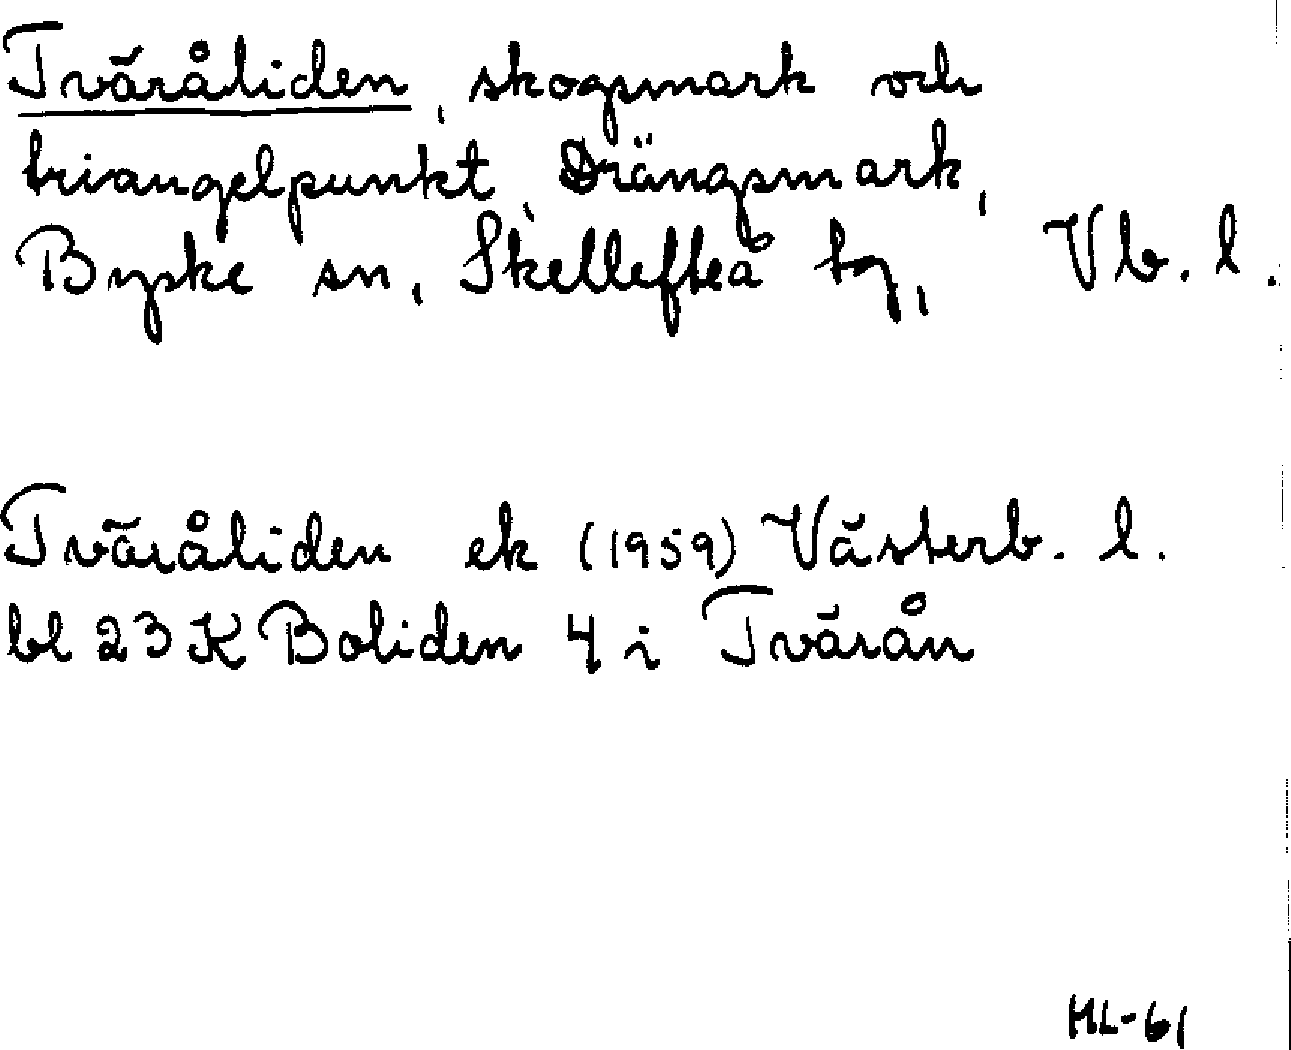 Tväråliden, skogsmark och
triangelpunkt, Drängsmark,
Byske sn, Skellefteå tg, Vb. l.
Tväråliden ek (1959) Västerb. l.
bl 23 K Boliden 4 i Tvärån
HL-61